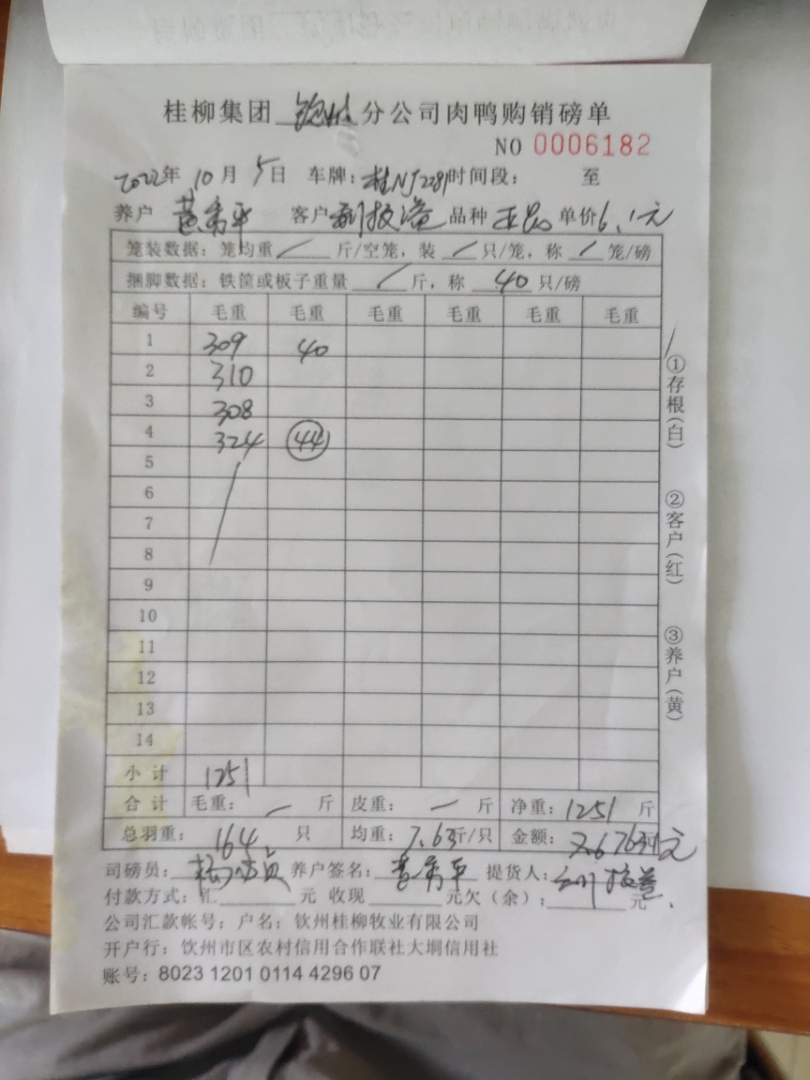 桂柳集团 钦州 分公司肉鸭购销磅单
NO 0006182
2022年 10月 5日 车牌:桂NJ2281 时间段: 至
养户 黄秀平 客户 品种 单价6.1元
笼装数据:笼均重 / 斤/空笼,装 / 只/笼,称 / 笼/磅
捆脚数据:铁筐或板子重量 / 斤,称 40 只/磅
编号 毛重 毛重 毛重 毛重 毛重 毛重
1 309 40
2 310
3 308
4 324 44
5
6
7
8
9
10
11
12
13
14
小计 1251
合计 毛重: — 斤 皮重: — 斤 净重:1251 斤
总羽重: 164 只 均重:7.63斤/只 金额: 元
司磅员: 养户签名:黄秀平 提货人:
付款方式:汇 元 收现 元欠(余): 元
公司汇款帐号:户名:钦州桂柳牧业有限公司
开户行:钦州市区农村信用合作联社大垌信用社
账号:8023 1201 0114 4296 07
①存根(白)
②客户(红)
③养户(黄)